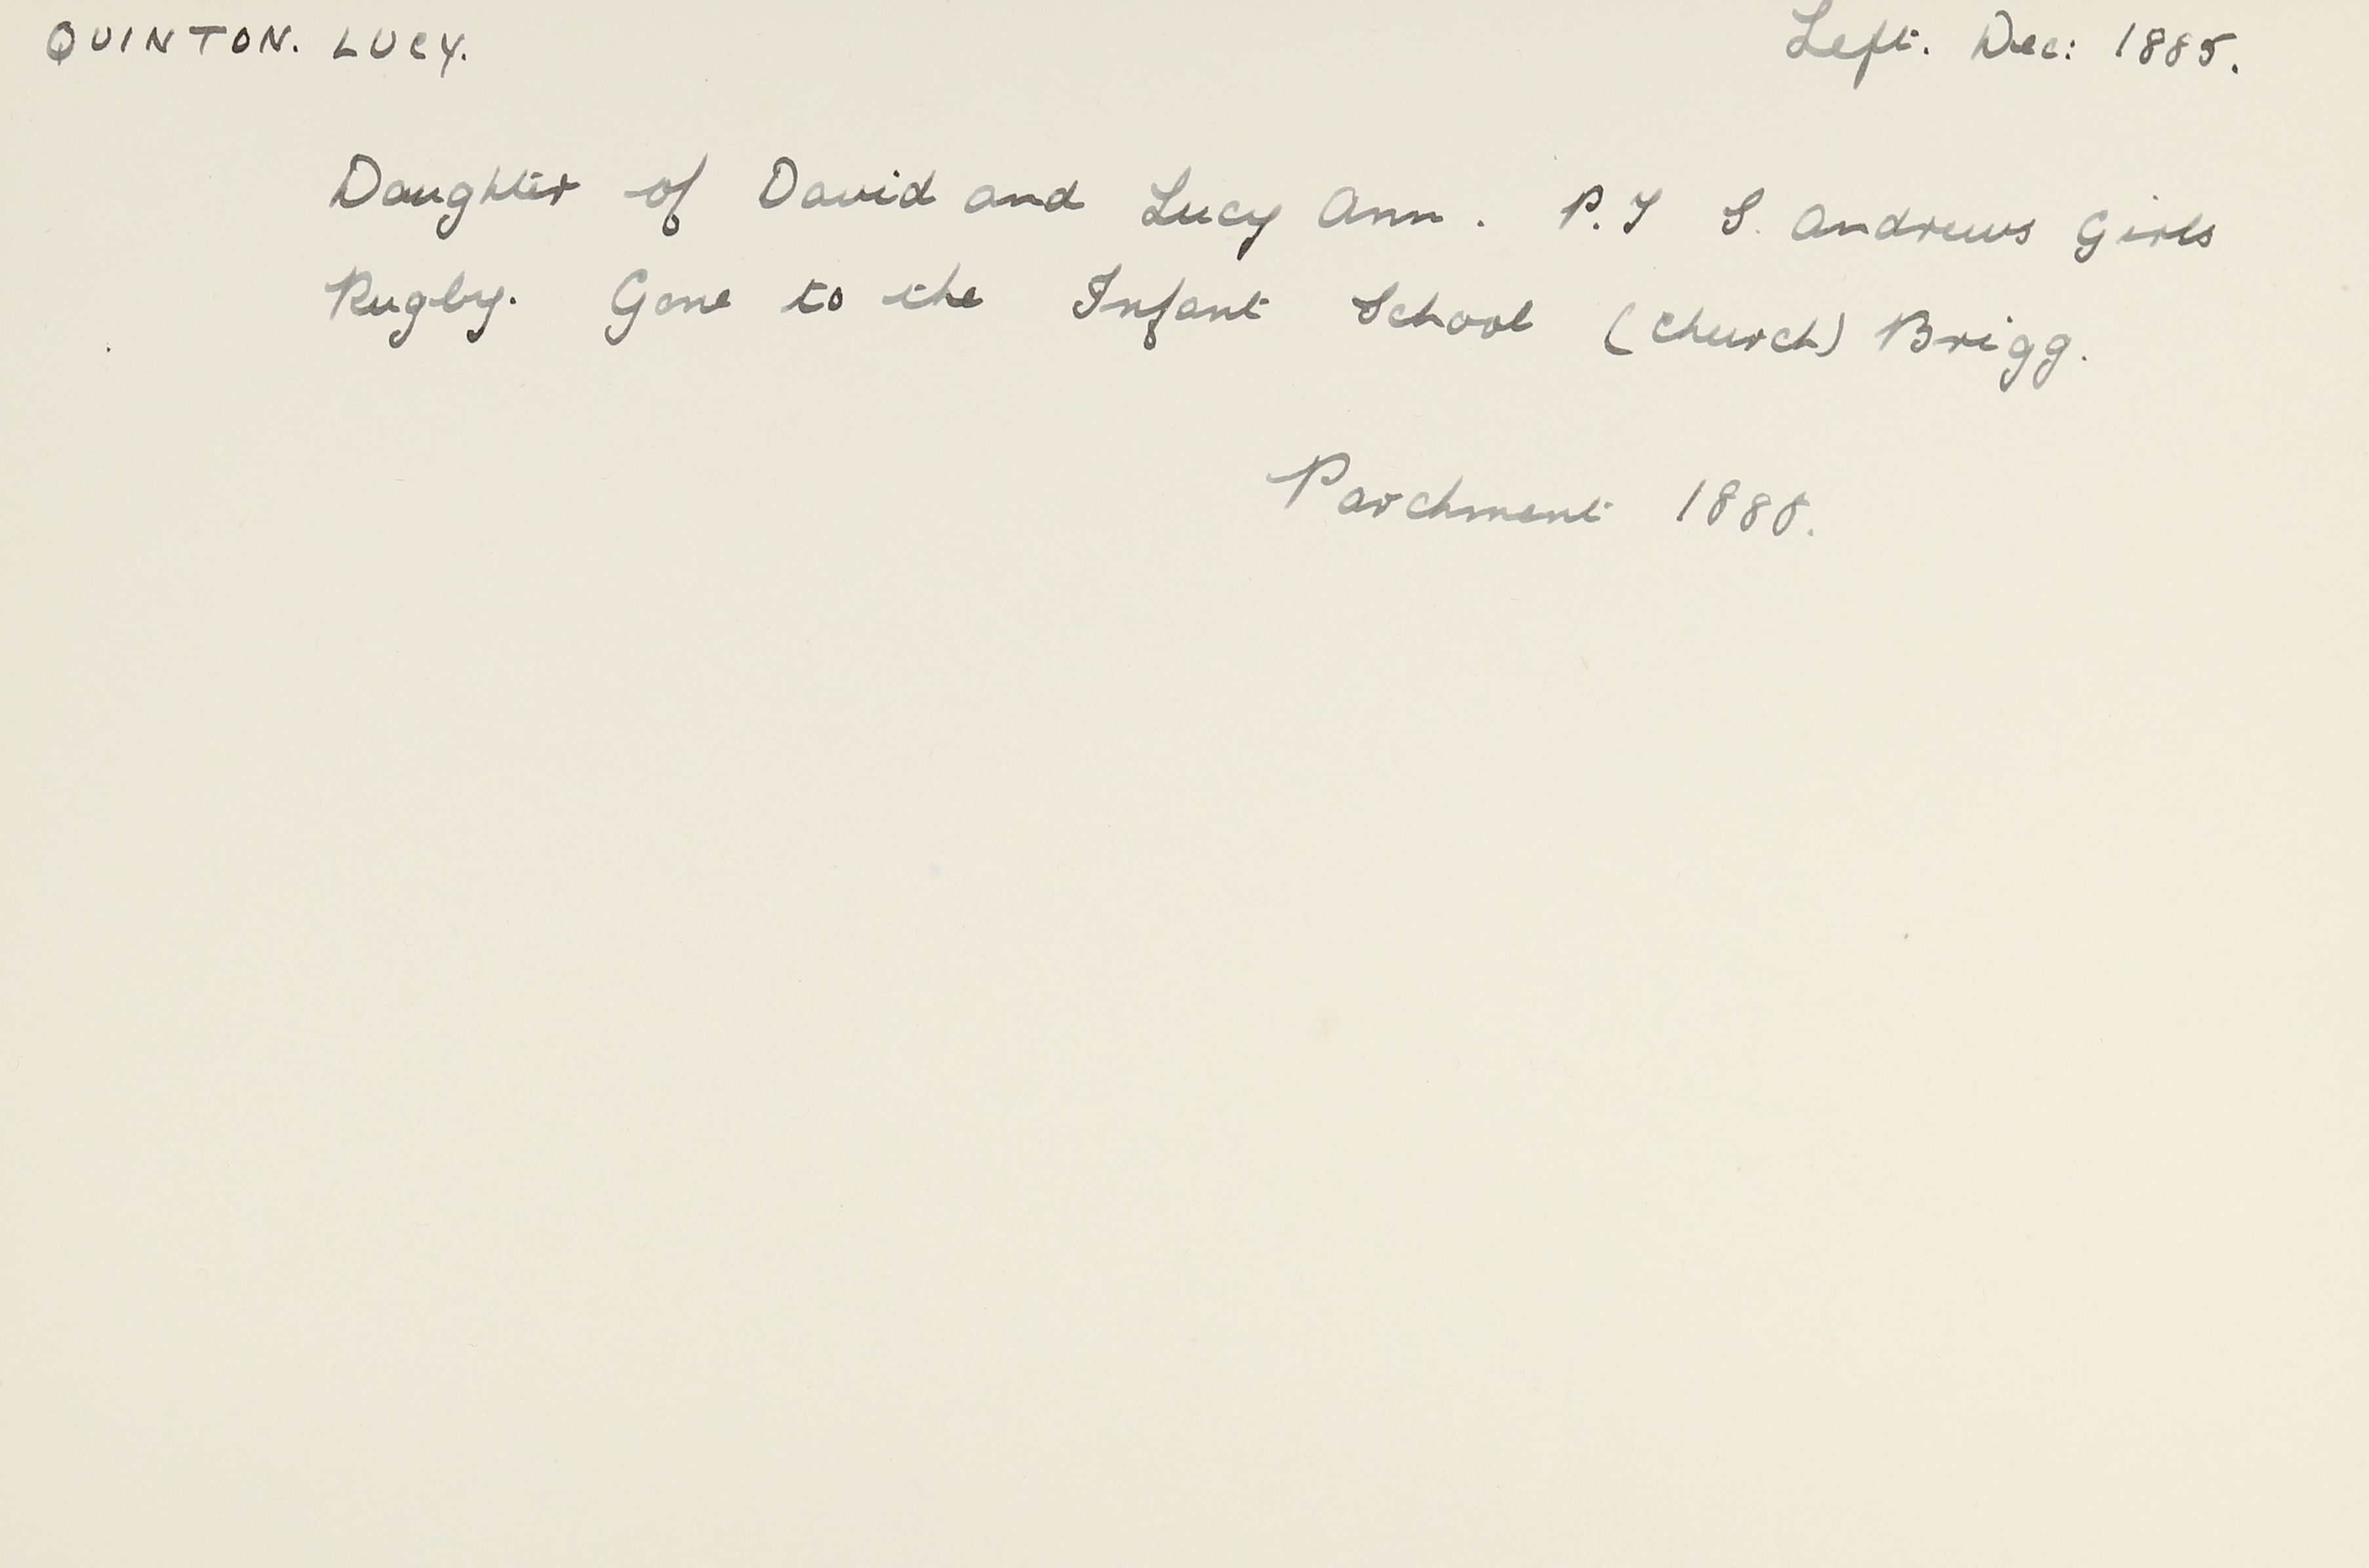 QUINTON. LUCY. Left. Dec: 1885.
Daughter of David and Lucy Ann. P.T S. Andrews Girls
Rugby. Gone to the Infant School (Church) Brigg.
Parchment 1888.